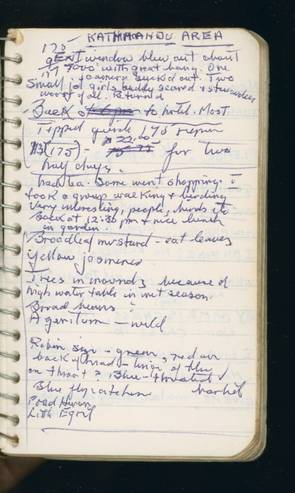 KATHMANDU AREA
window blew out about
7000' with great bang. One
camera sucked out. Two
Small girls badly scared & stewardess
worst of all. Returned
Back to hotel. Most
Tipped guide
(175) - for two
half days.
Had tea. Some went shopping. I
took a group walking & birding
Very interesting, people, birds etc
Back at 12:30 pm & nice lunch
in garden.
Broadleaf mustard - eat leaves
yellow jasmine
Trees in mounds because of
high water table in wet season.
Broad beans
Ageratum - wild
Robin size - green, red on
back of head - tinge of blue
on throat? Blue-throated
barbet
Blue flycatcher
Pond Heron
Little Egret